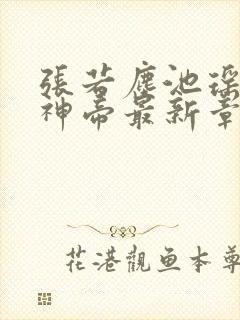 張若塵池瑤
神帝最新章
花港觀鱼本尊